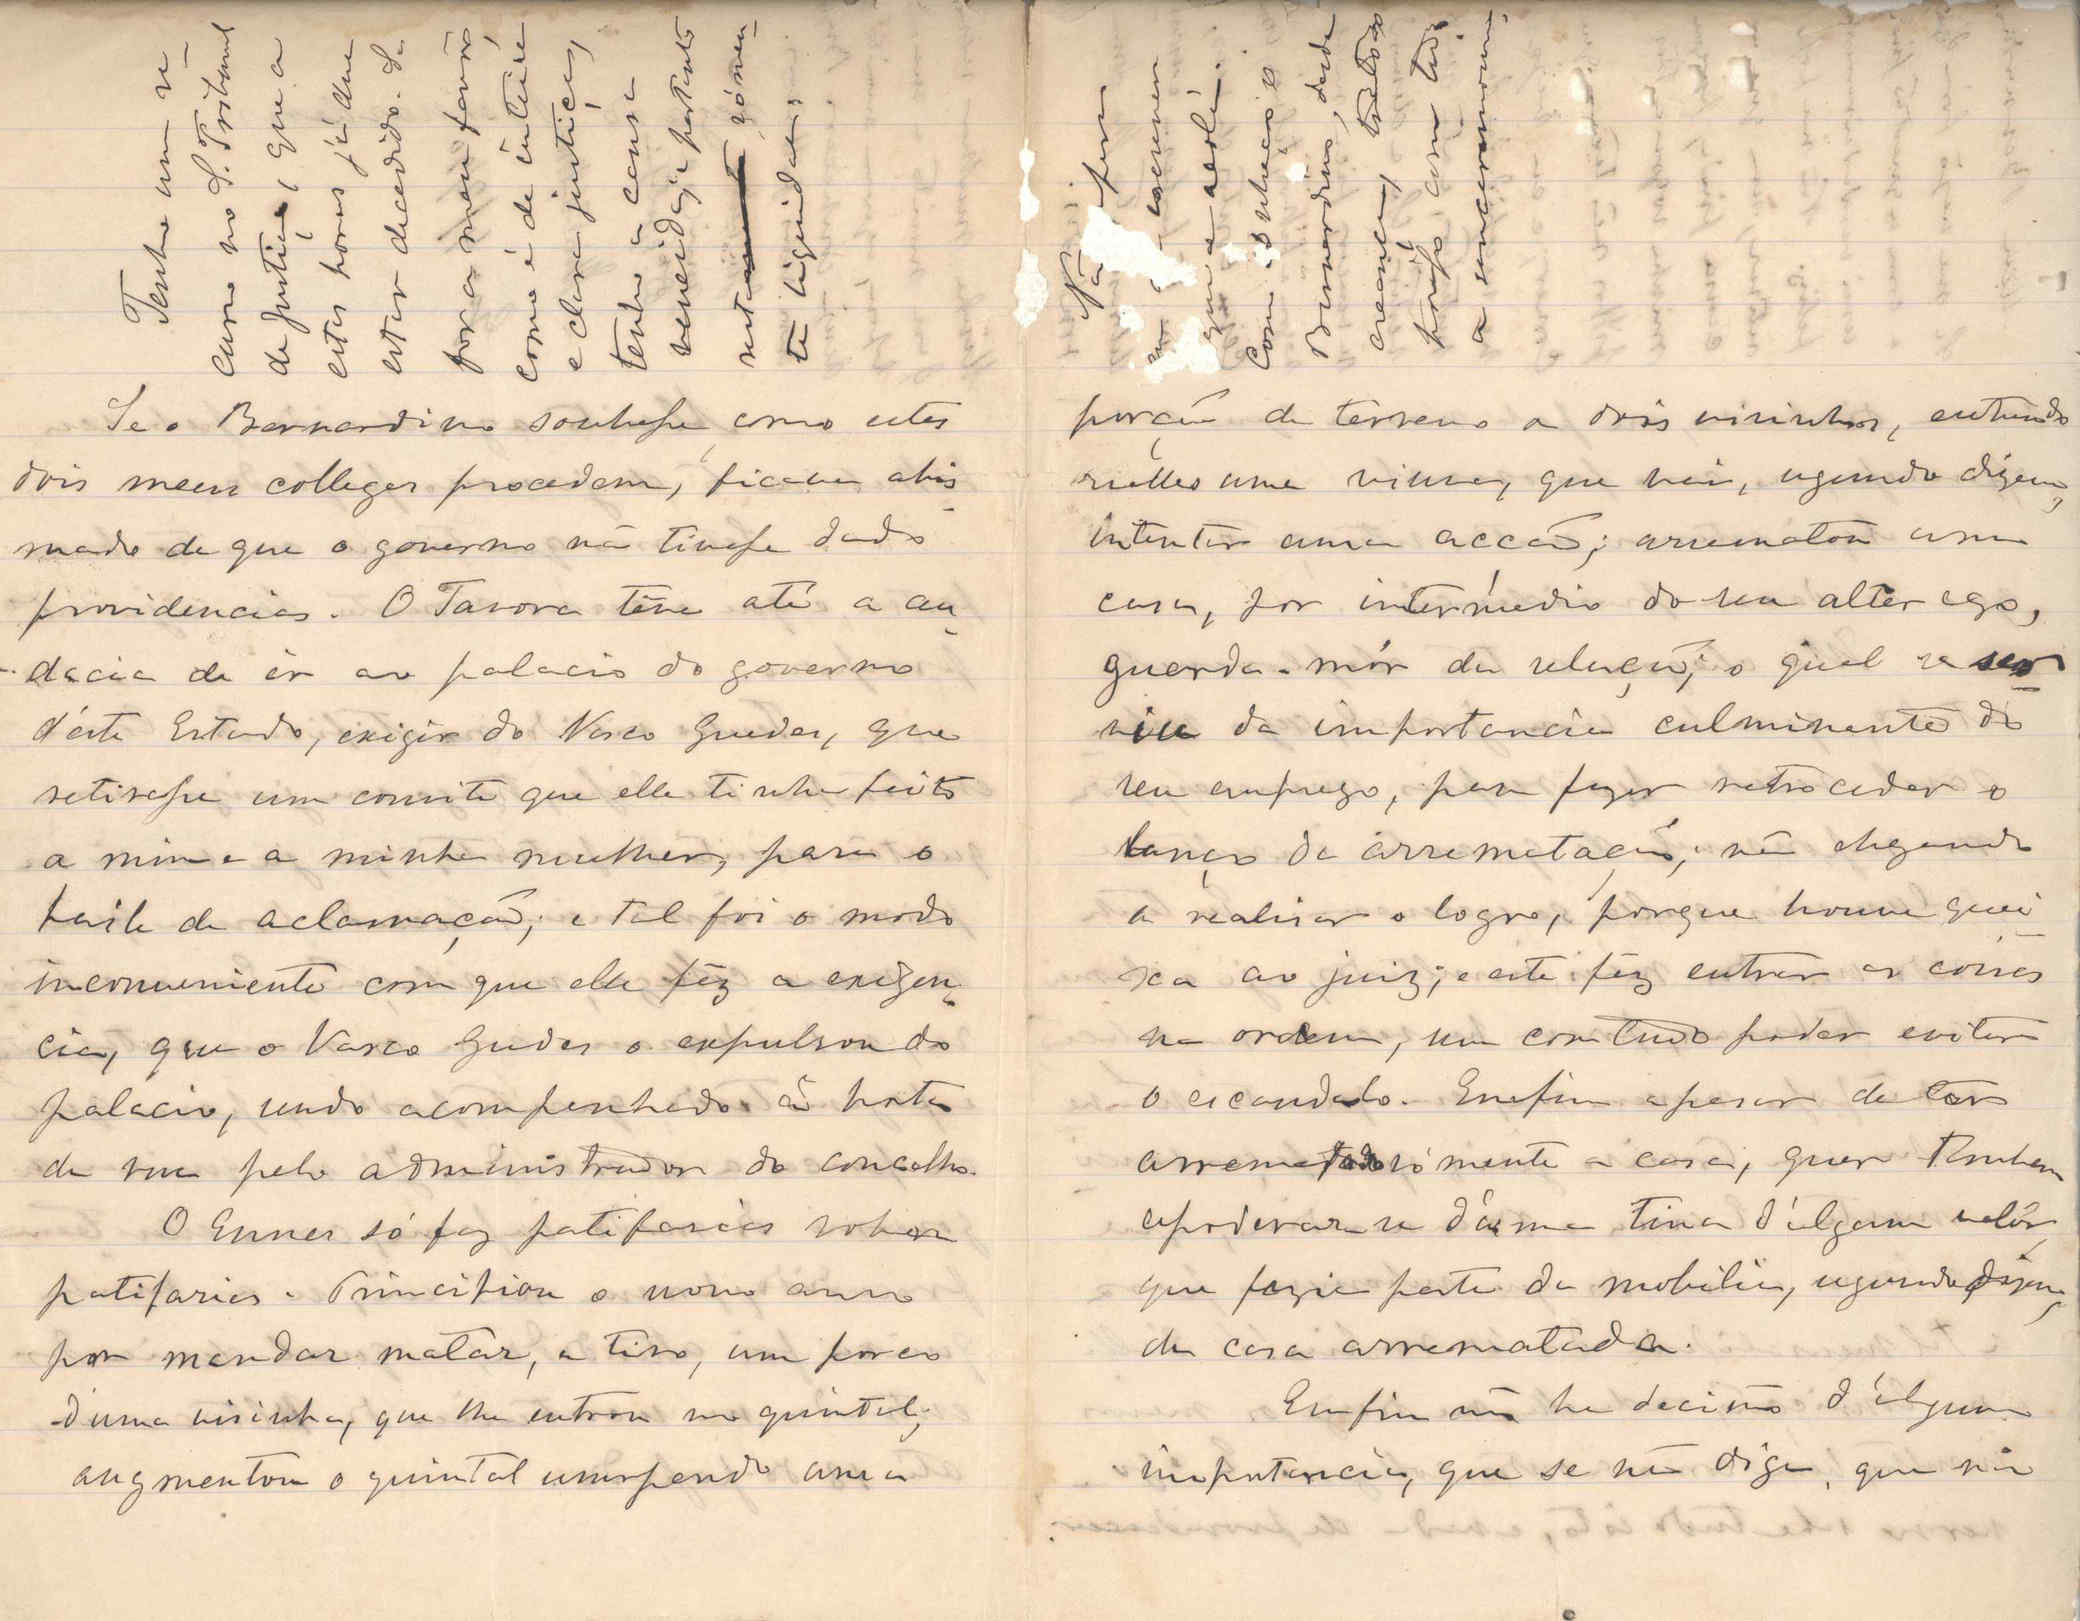 Tenho um re-
curso no S. Tribunal
de Justiça, que a
estas horas já deve
estar decedido. Se
for a meu favôr
como é de inteira
e clara justiça,
tenho a causa
vencida, e portanto
sómen-
te liquidada.
Se o Bernardino soubesse como estes
dois meus collegas procedem, ficava abis-
mado de que o governo não tivesse dado
providencias. O Tavora têve até a au-
dacia de ir ao palacio do governo
d'éste Estado, exigir do Vasco Guedes, que
retirasse um convite que elle tinha feito
a mim e a minha mulher, para o
baile da aclamação; e tal foi o modo
inconveniente com que elle fêz a exigen-
cia, que o Vasco Guedes o expulsou do
palacio, sendo acompanhado á porta
da rua pelo administrador do concelho.
O Ennes só faz patifarias sobre
patifarias. Principiou o novo anno
por mandar matar, a tiro, um porco
d'uma visinha, que lhe entrou no quintal;
augmentou o quintal usurpando uma
Não posso
escrever
que a
com o
Bernardino, desde
creança,
por isso com tudo
a
porção de terreno a dois visinhos, entrando
n'elles uma viuva, que vai, segundo dizem,
intentar uma acção; arrematou uma
casa, por intermedio do seu alter ego,
guarda-mór da relação; o qual se ser-
viu da importancia culminante do
seu emprego, para fazer retroceder o
lanço da arrematação; não chegando
a realisar o logro, porque houve quei-
xa ao juiz; e este fêz entrar as coisas
na ordem, sem comtudo poder evitar
o escandalo. Emfim apesar de ter
arrematado sómente a casa, quer tambem
apoderar-se d'uma tina d'algum valôr,
que fazia parte da mobilia, segundo dizem,
da casa arrematada.
Emfim não ha decisão d'alguma
importancia, que se não diga, que não